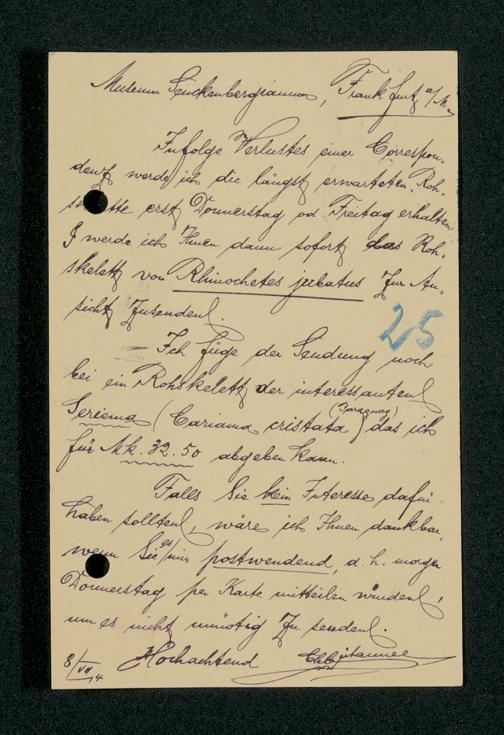 Museum Senckenbergianum, Frankfurt a/M.
Infolge Verlustes einer Correspon-
denz werde ich die längst erwarteten Roh-
skelette erst Donnerstag od Freitag erhalten
werde ich Ihnen dann sofort das Roh-
skelett von Rhinochetes jubatus zur An-
sicht zusenden.
25
– Ich füge der Sendung noch
bei ein Rohskelett der interessanten
(Paraguay)
Seriema (Cariama cristata) das ich
für Mk. 32.50 abgeben kann.
Falls Sie kein Interesse dafür
haben sollten, wäre ich Ihnen dankbar,
wenn Sie es mir postwendend, d. h. morgen
Donnerstag per Karte mitteilen würden,
um es nicht unnötig zu senden.
8/VII 4 Hochachtend